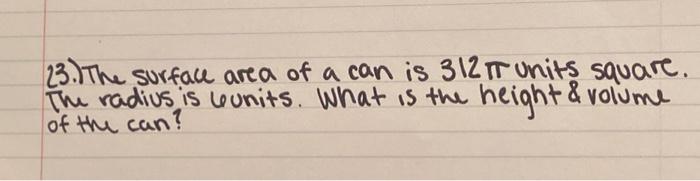 23.) The surface area of a can is 312π units square.
The radius is 6 units. What is the height & volume
of the can?